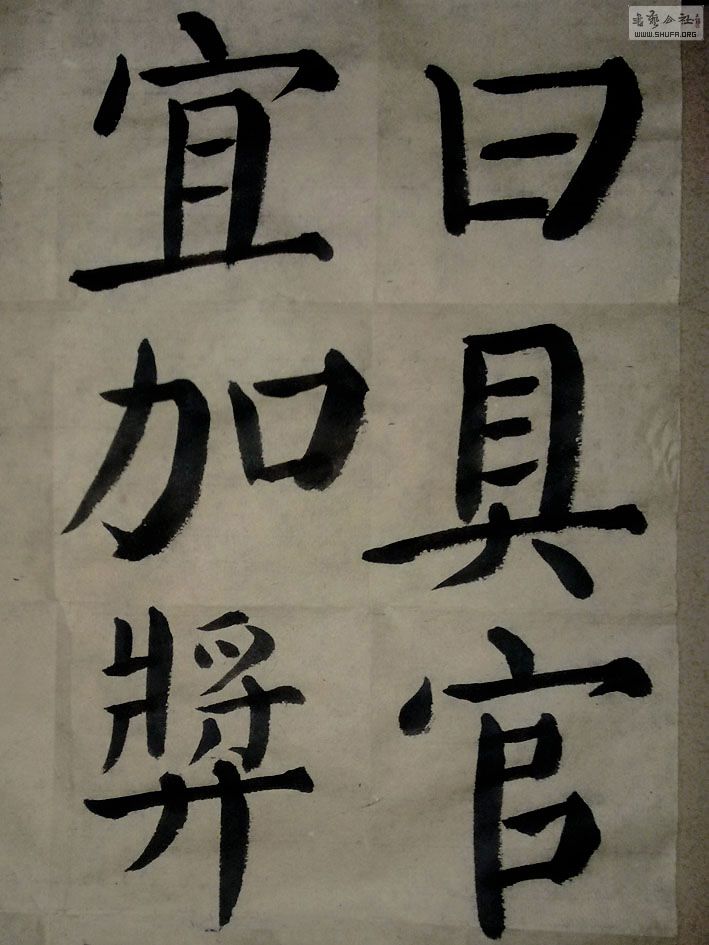 曰具官
宜加㢡
書藝公社
WWW.SHUFA.ORG